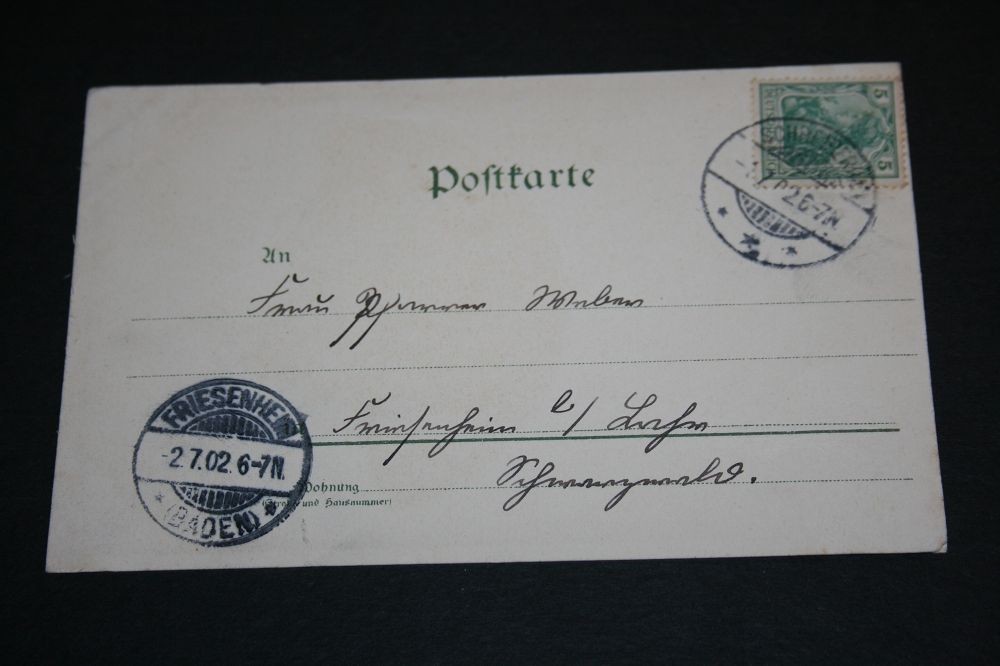 5
5
02.6-7N.
Postkarte
An
Frau Pfarrer Weber
Friesenheim b/ Lahr
Schwarzwald.
Wohnung
(Straße und Hausnummer)
FRIESENHEIM
-2.7.02.6-7N.
(BADEN)